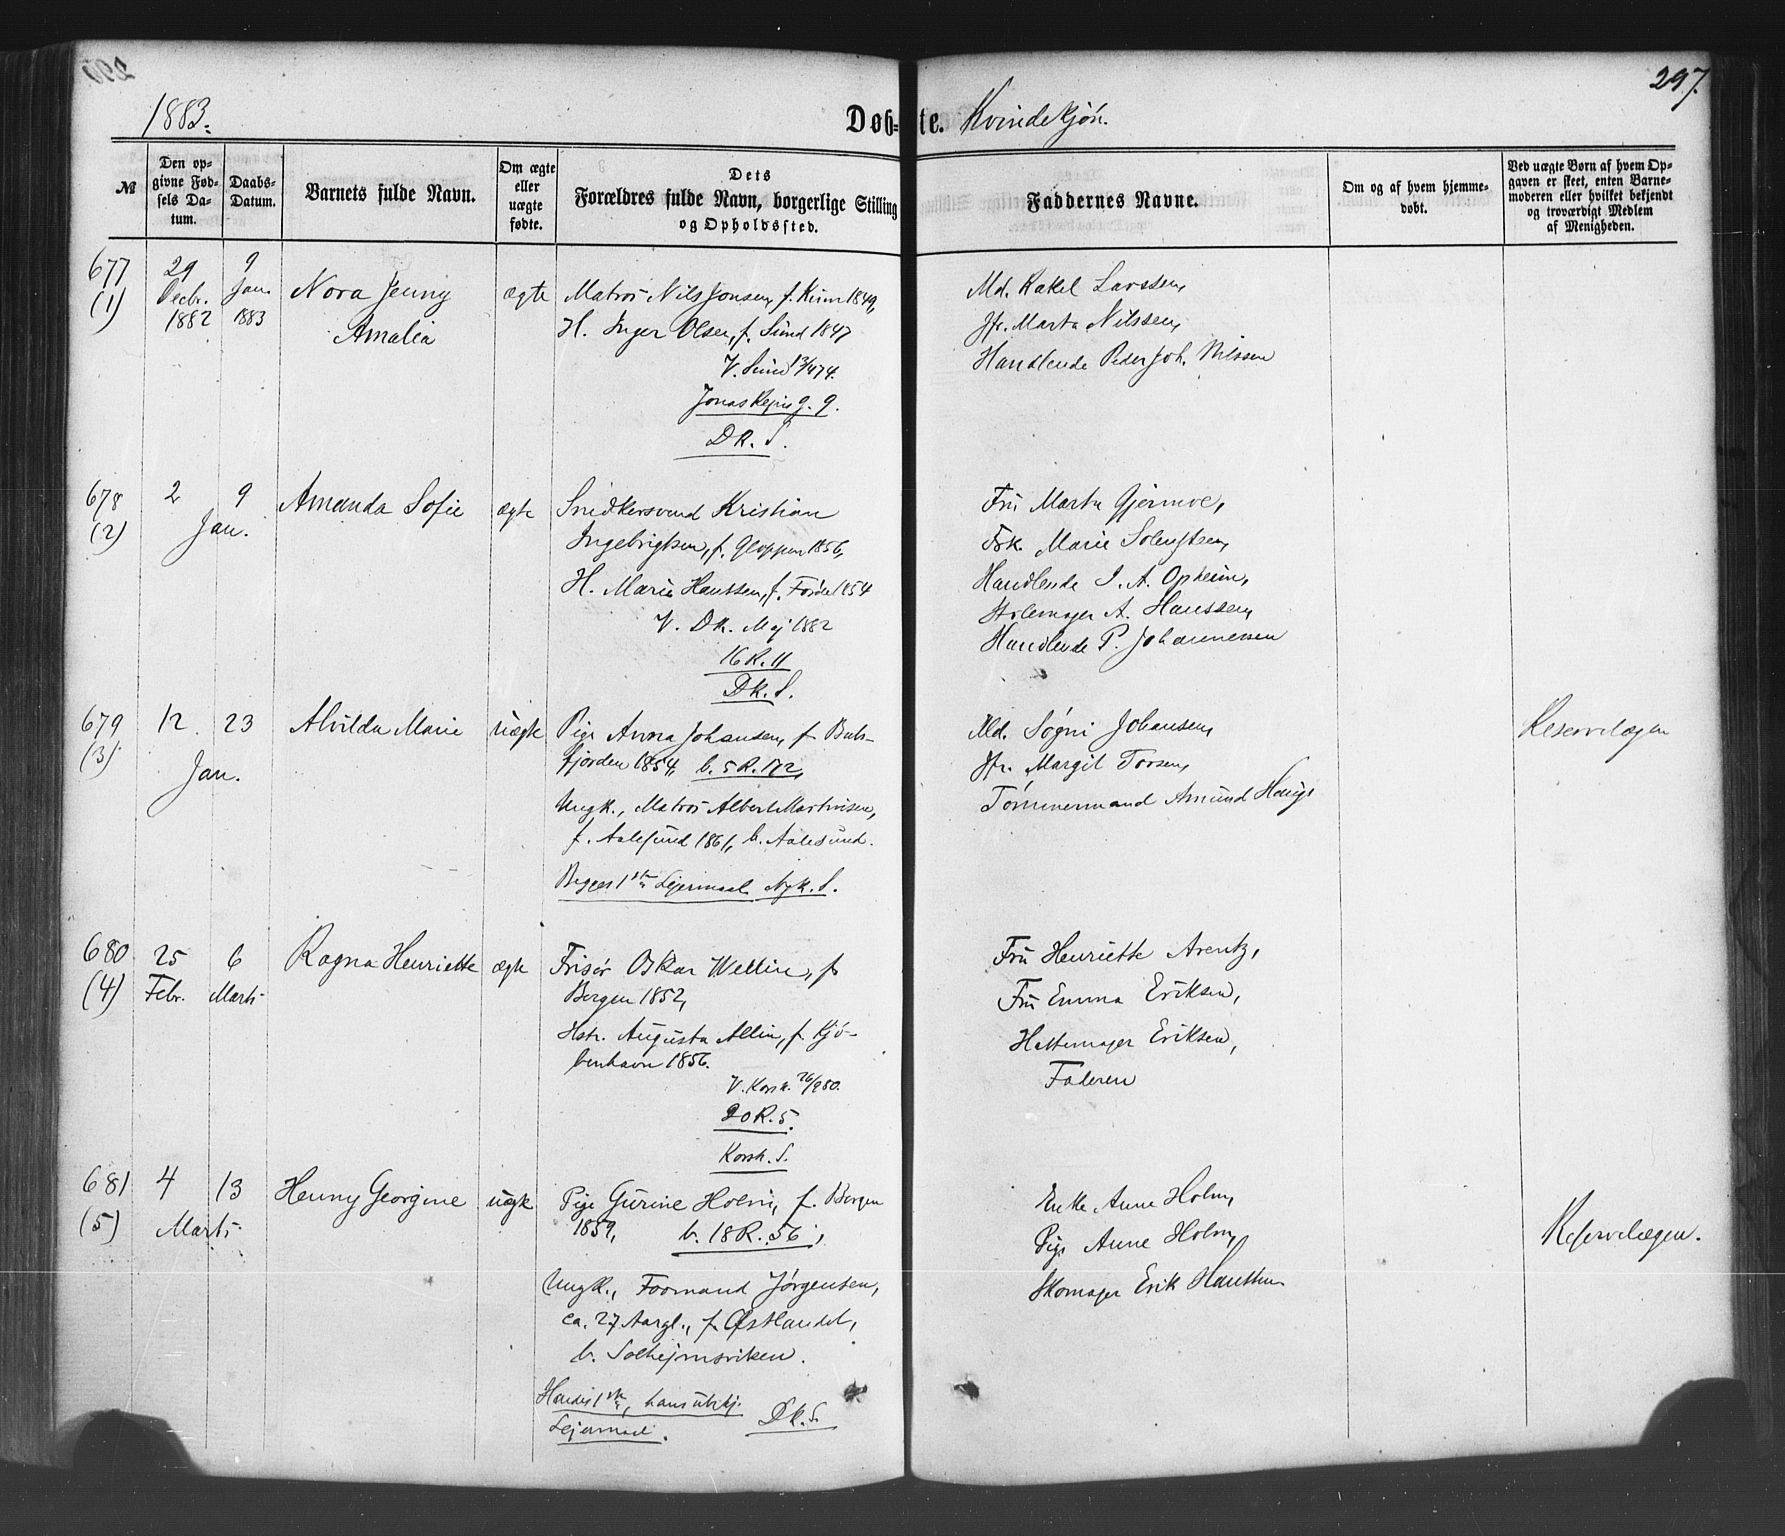 297.
1883.
Døb-te. Kvindekjøn.
№
Den opgivne Fødsels Datum.
Daabs-Datum.
Barnets fulde Navn.
Om ægte eller uægte fødte.
Dets Forældres fulde Navn, borgerlige Stilling og Opholdssted.
Faddernes Navne.
Om og af hvem hjemmedøbt.
Ved uægte Børn af hvem Opgaven er skeet, enten Barnemoderen eller hvilket bekjendt og troværdigt Medlem af Menigheden.
677 (1)
29 Decbr. 1882
9 Jan. 1883
Nora Jenny
Amalia
ægte
Matros Nils Jonsen, f. 1849,
H. Inger Olsen, f. Sund 1847
V. Sund
9.
Dk. S.
Md. Rakel Larssen,
Jfr. Marta Nilssen,
Handlende Peder Joh. Nilssen
678 (2)
2 9
Jan.
Amanda Sofie
ægte
Snedkersvend Kristian
Ingebrigtsen, f. Gloppen 1856,
H. Marie Hanssen, f. Førde 1854
V. Dk. Maj 1882
16 R. 11
Dk. S.
Fru Marta Gjermoe,
Frk. Marie
Handlende I. A. Opheim,
Stolemager A. Hanssen,
Handlende P. Johannessen
679 (3)
12 23
Jan.
Alvilda Marie
uægte
Pige Anna Johansen, f.
fjorden 1854, b. 5 R. 172,
Ungk., Matros Albert Martinsen,
f. Aalesund 1861, b. Aalesund.
Begges 1ste Leiermaal. Nyk. S.
Md. Søgni Johansen,
Jfr. Margit Torsen,
Tømmermand Amund Hauge
Reservelægen
680 (4)
25 Febr.
6 Marts
Ragna Henriette
ægte
Frisør Oskar Wellin, f.
Bergen 1852,
Hstr. Augusta Allin, f. Kjø-
benhavn 1856.
V. Korsk. 26/9 80.
20 R. 5.
Korsk. S.
Fru Henriette Arentz,
Fru Emma Eriksen,
Hattemager Eriksen,
Faderen
681 (5)
4 13
Marts
Henny Georgine
uægte
Pige Gurine Holm, f. Bergen
1859, b. 18 R. 56,
Ungk., Formand Jørgensen,
ca. 27 Aargl., f. Østlandet,
b. Solheimsviken.
Hendes 1ste, hans ubkj.
Leiermaal.
Dk. S.
Enke Anne Holm,
Pige Anne Holm,
Skomager Erik Hanssen
Reservelægen.